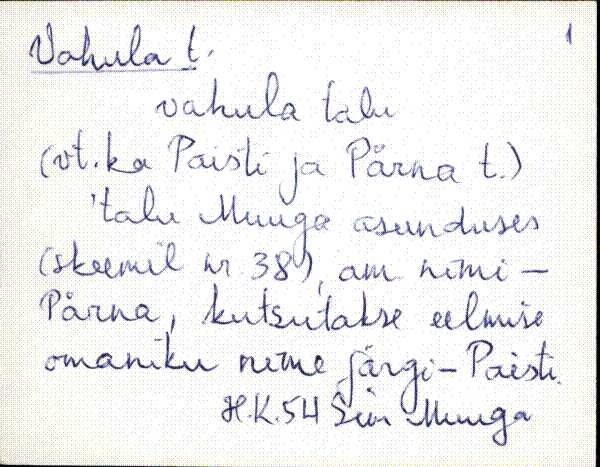 Vahula t. 1
vahula talu
(vt. ka Paisti ja Pärna t.)
'talu Muuga asunduses
(skeemil nr. 38), am. nimi –
Pärna, kutsutakse eelmise
omaniku nime järgi – Paisti.
H.K. 54 Sim Muuga